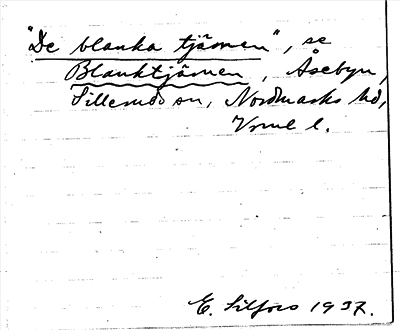 "De blanka tjärnen", se
Blanktjärnen, Åsebyn,
Sillerud sn, Nordmarks hd,
Vrml l.
E. Lilfors 1937.